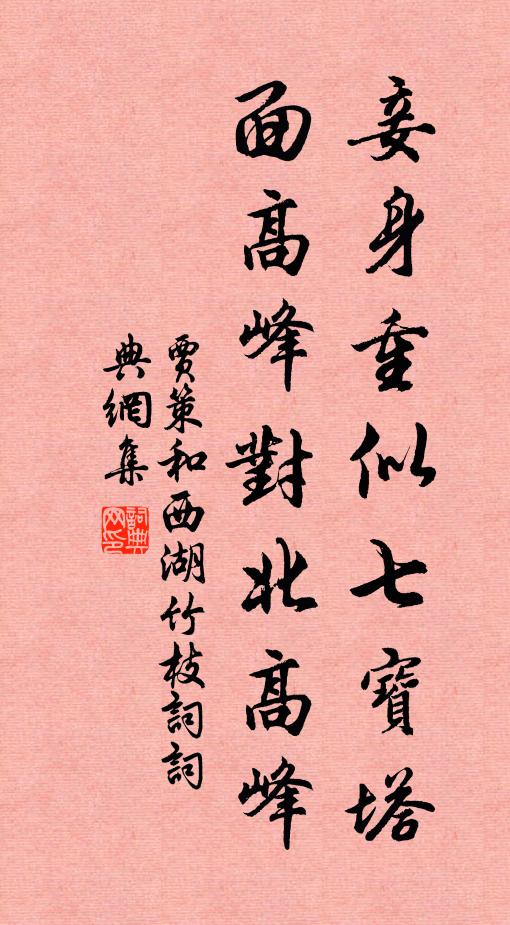 妾身重似七寶塔
面高峰對北高峰
賈策和西湖竹枝詞詞
典網集
詞典網印